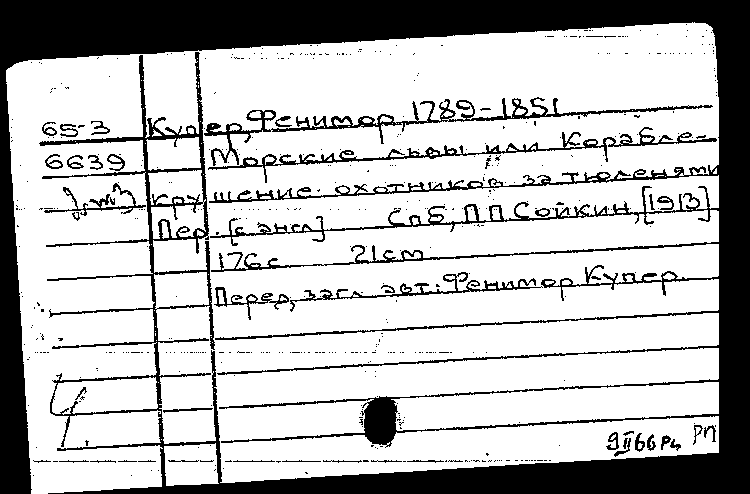 65-3 Купер, Фенимор, 1789-1851
6639 Морские львы или Корабле-
кру шение охотников за тюленями
Пер. [с англ] Спб, П П Сойкин, [1913]
176с 21cm
Перед загл авт: Фенимор Купер.
Ч.
9 II 66 РЦ РП